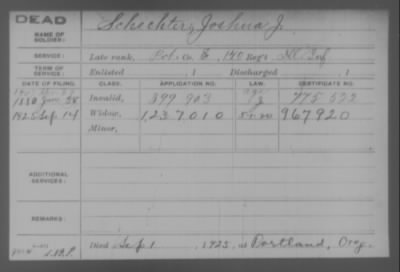 DEAD
NAME OF SOLDIER: Schechter, Joshua J.
SERVICE: Late rank, Pvt. Co. E, 140 Reg't Ill. Inf.
TERM OF SERVICE: Enlisted , 1 Discharged , 1
DATE OF FILING. CLASS. APPLICATION NO. LAW. CERTIFICATE NO.
1880 Invalid, 399 903 775 522
1925 Sep 14 Widow, 1,237010 967920
Minor,
ADDITIONAL SERVICES:
REMARKS:
Died Sep 1 , 1925, at Portland, Oreg.